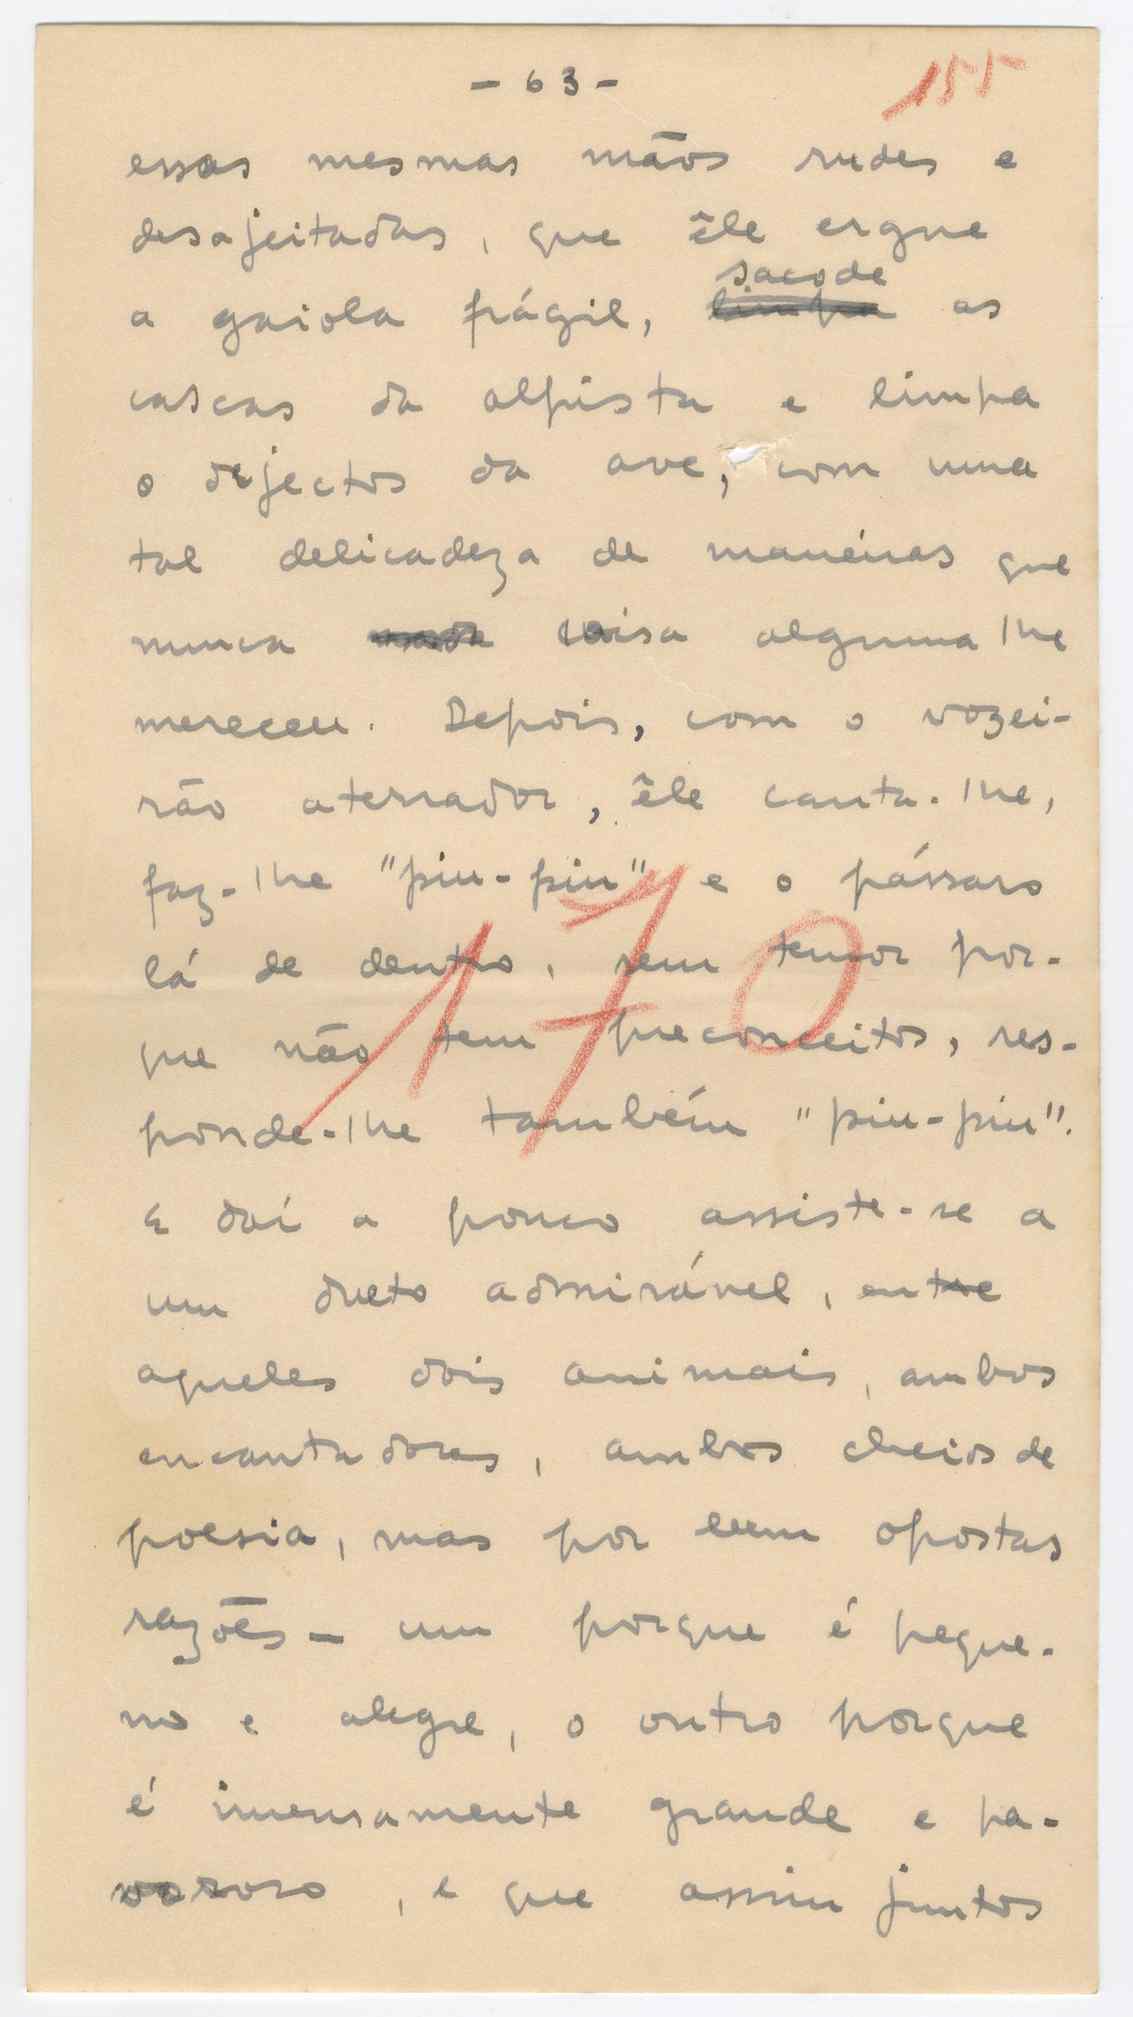 - 63 -
155
essas mesmas mãos rudes e
desajeitadas, que êle ergue
sacode
a gaiola frágil, limpa as
cascas da alpista e limpa
o dejectos da ave, com uma
tal delicadeza de maneiras que
nunca coisa alguma lhe
mereceu. Depois, com o vozei-
rão aterrador, êle canta-lhe,
faz-lhe "piu-piu" e o pássaro
lá de dentro, sem temor por-
que não tem preconceitos, res-
ponde-lhe também "piu-piu".
170
E daí a pouco assiste-se a
um dueto admirável, entre
aqueles dois animais, ambos
encantadores, ambos cheios de
poesia, mas por bem opostas
razões - um porque é peque-
no e alegre, o outro porque
é imensamente grande e pa-
voroso, e que assim juntos